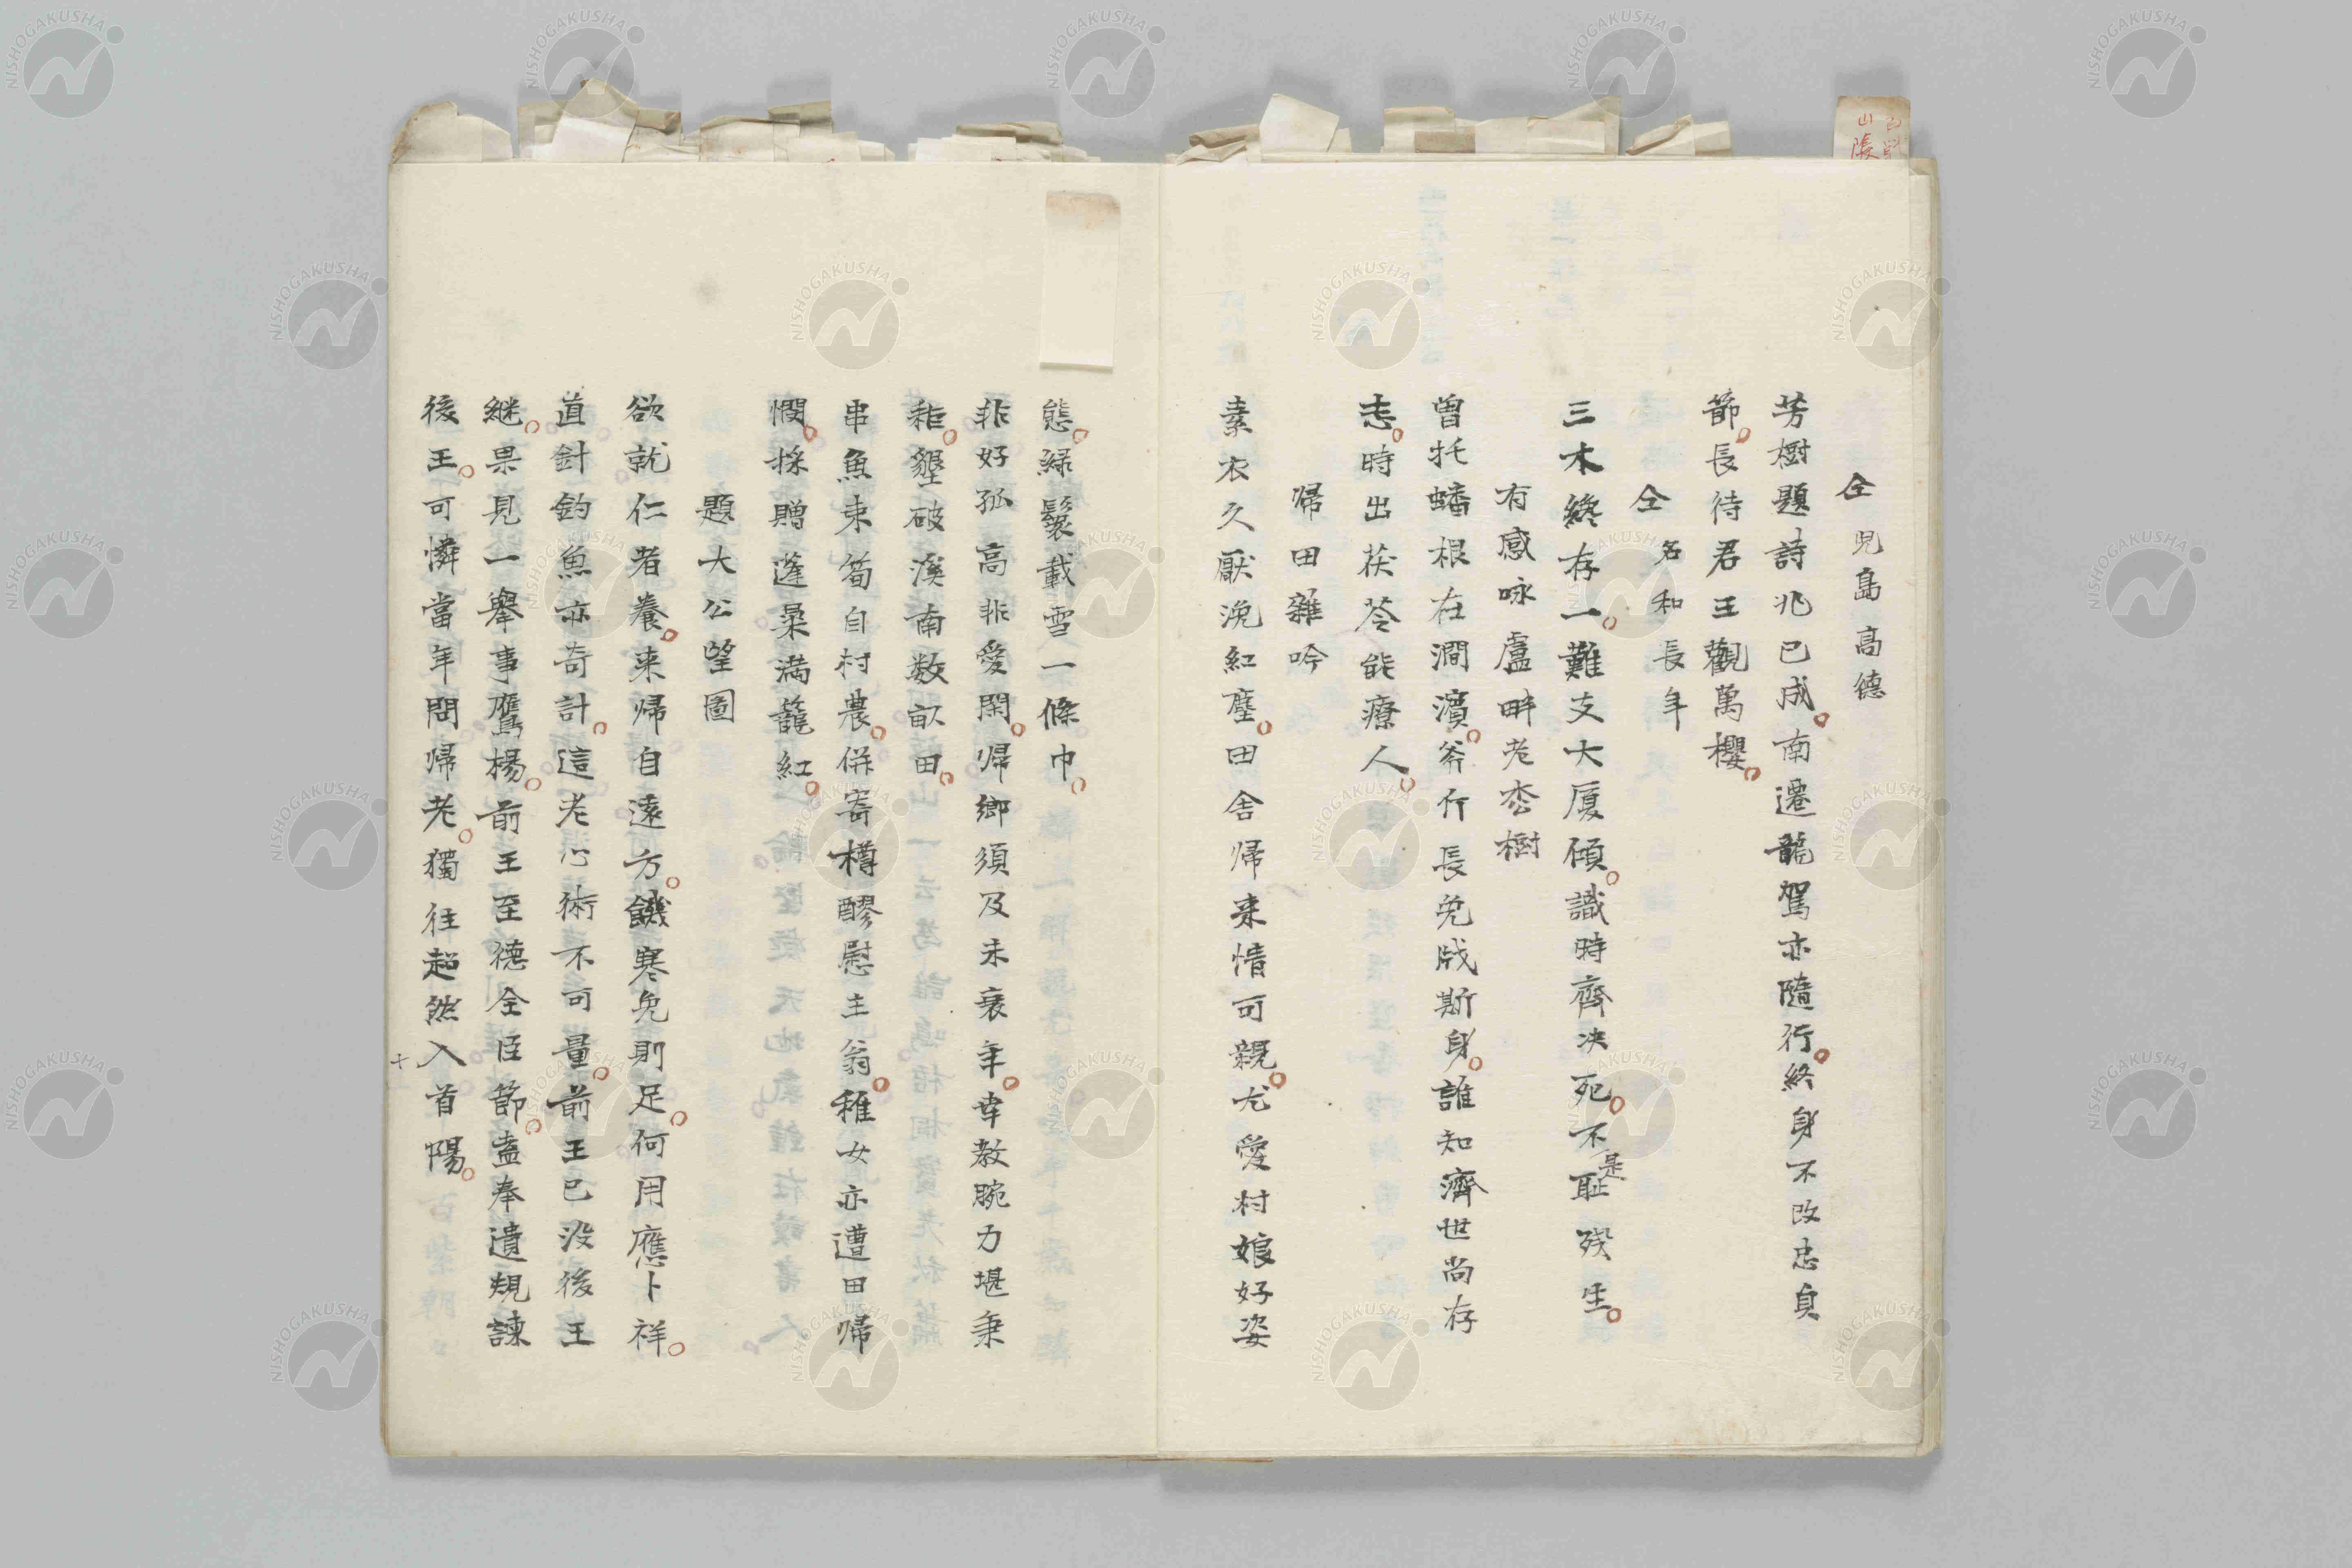 仝 児島高徳
芳樹題詩兆已成。南遷龍駕亦隨行。終身不改忠貞
節。長待君王觀萬櫻。
仝 名和長年
三木終存一。難支大厦傾。識時齊决死。不是耻残生。
有感咏盧畔老枩樹
曽托蟠根在澗濱。斧斤長免戕斯身。誰知濟世尚存
志。時出茯苓能療人。
帰田雜吟
素衣久厭涴紅塵。田舎帰来情可親。尤愛村娘好姿
態。緑鬟載雪一條巾。
非好孤高非愛閑。帰郷須及未衰年。幸教腕力堪秉
耟。墾破溪南数畝田。
串魚束筍自村農。併寄樽醪慰主翁。稚女亦遭田帰
憫。採贈蓬桑満籠紅。
題大公望圖
欲就仁者養。来帰自遠方。饑寒免則足。何用應卜祥。
直針釣魚亦奇計。這老心術不可量。前王已没後王
継。果見一擧事鷹楊。前王至德全臣節。盍奉遺規諌
後王。可憐當年問帰老。獨往超然入首陽。
十